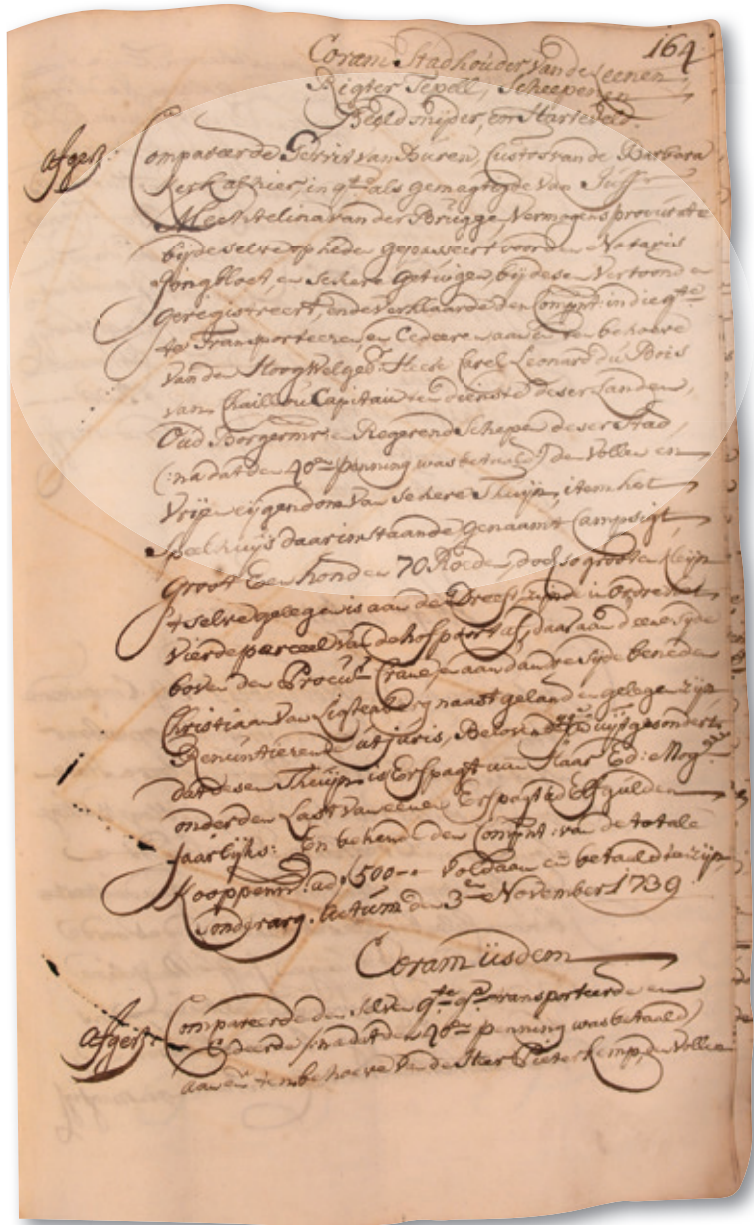 164
Coram Stadhouder van de Leenen
Rigter Tepell, Scheepenen
en Hartevelt.
afgez:
Compareerde Gerrit van Buren, Custos van de Barbara
Kerk alhier, in qte als gemagtigde van Juffr
Mechtelina van der Brugge, Vermogens procuratie
bij deselve op hede gepasseert voor den Notaris
Jongbloet, en sekere getuigen, bij dese Vertoond en
geregistreert, ende verklaarde den Compnt: in die qte
te Transporteeren, en Cedeeren aan en ten behoeve
van den HoogWelged: Heere Carel Leonard du Bois
van Chaillou Capitain ten dienste deser Landen,
Oud Borgermr en Regerend Schepen deser Stad,
(: na dat den 40en penning was betaald:) den vollen en
Vrijen eijgendom van sekere Thuijn, item het
Speelhuijs daar in staande, genaamt Campsigt,
groot Een hond en 70 Roeden, doch so groot en kleijn
't selve gelegen is aan de Dreeff, zijnde in ordre het
Vierde parceel van de hofpoort af, daar aan d'eene sijde
boven den Procur Crane, en aan d'andre sijde beneden
Christiaan van Ligtenberg naast geland en gelegen zijn
Renuntierende ut juris, Belovende
dat desen Thuijn is Erfpagt aan Haar Ed: Mog:
onder den Last van eenen Erfpagt ad Elf gulden
Jaarlijks: En bekende den Compnt: van de totale
Kooppenn: ad ƒ500-- voldaan en betaald te zijn
Sonder arg. Actum den 3en November 1739
Coram iisdem
afgez:
Compareerde den selven qte qa transporteerde en
Cedeerde (: na dat den 40en penning was betaald)
aan en ten behoeve van de Heer Pieter Kemp, den vollen